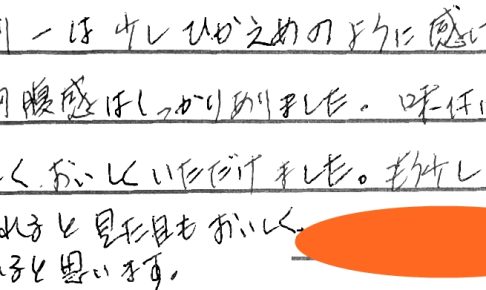 リーは少しひかえめのように感じ
腹感はしっかりありました。味付は
くおいしくいただけました。もう少し
れると見た目もおいしく、
ると思います。